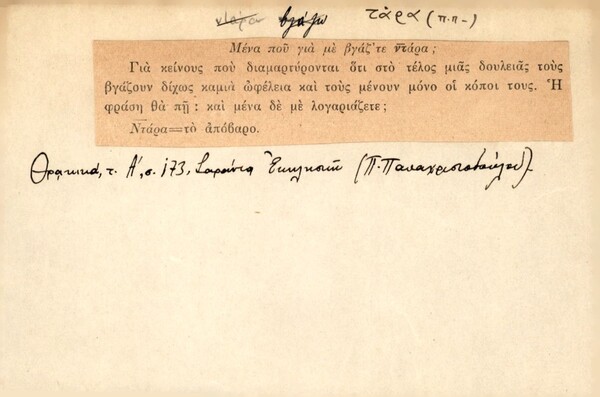 ντάρα βγάζω τάρα (π.π-)
Μένα ποῦ γιὰ μὲ βγάζ'τε ν̅τάρα ;
Γιὰ κείνους ποὺ διαμαρτύρονται ὅτι στὸ τέλος μιᾶς δουλειᾶς τοὺς
βγάζουν δίχως καμιὰ ὠφέλεια καὶ τοὺς μένουν μόνο οἱ κόποι τους. Ἡ
φράση θὰ πῇ : καὶ μένα δὲ μὲ λογαριάζετε ;
Ν̅τάρα=τὸ ἀπόβαρο.
Θρακικά, τ. Α', σ. 173, Σαράντα Ἐκκλησιαί (Π. Παπαχριστοδούλου).